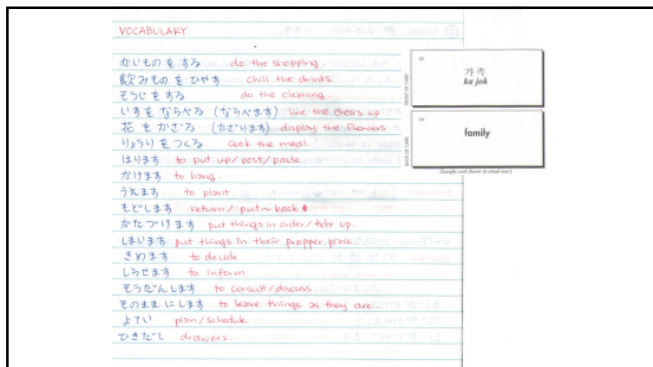 VOCABULARY
かいものをする do the shopping.
飲みものをひやす chill the drinks
そうじをする do the cleaning.
いすをならべる (ならべます) line the chairs up
花をかざる (かざります) display the flowers
りょうりをつくる cook the meal.
はります to put up/post/paste
かけます to hang.
うえます to plant
もどします return/put~back
かたづけます put things in order/tidy up.
しまいます put things in their propper place.
きめます to decide
しらせます to inform
そうだんします to consult/discuss.
そのままにします to leave things as they are.
よてい plan/schedule
ひきだし drawers.
가족
ka jok
family